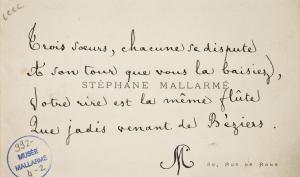 Trois sœurs, chacune se dispute
A son tour que vous la baisiez,
STÉPHANE MALLARMÉ
Votre rire est la même flûte
Que jadis venant de Béziers.
M
89, RUE DE ROME
992-
MUSÉE
MALLARMÉ
4-2